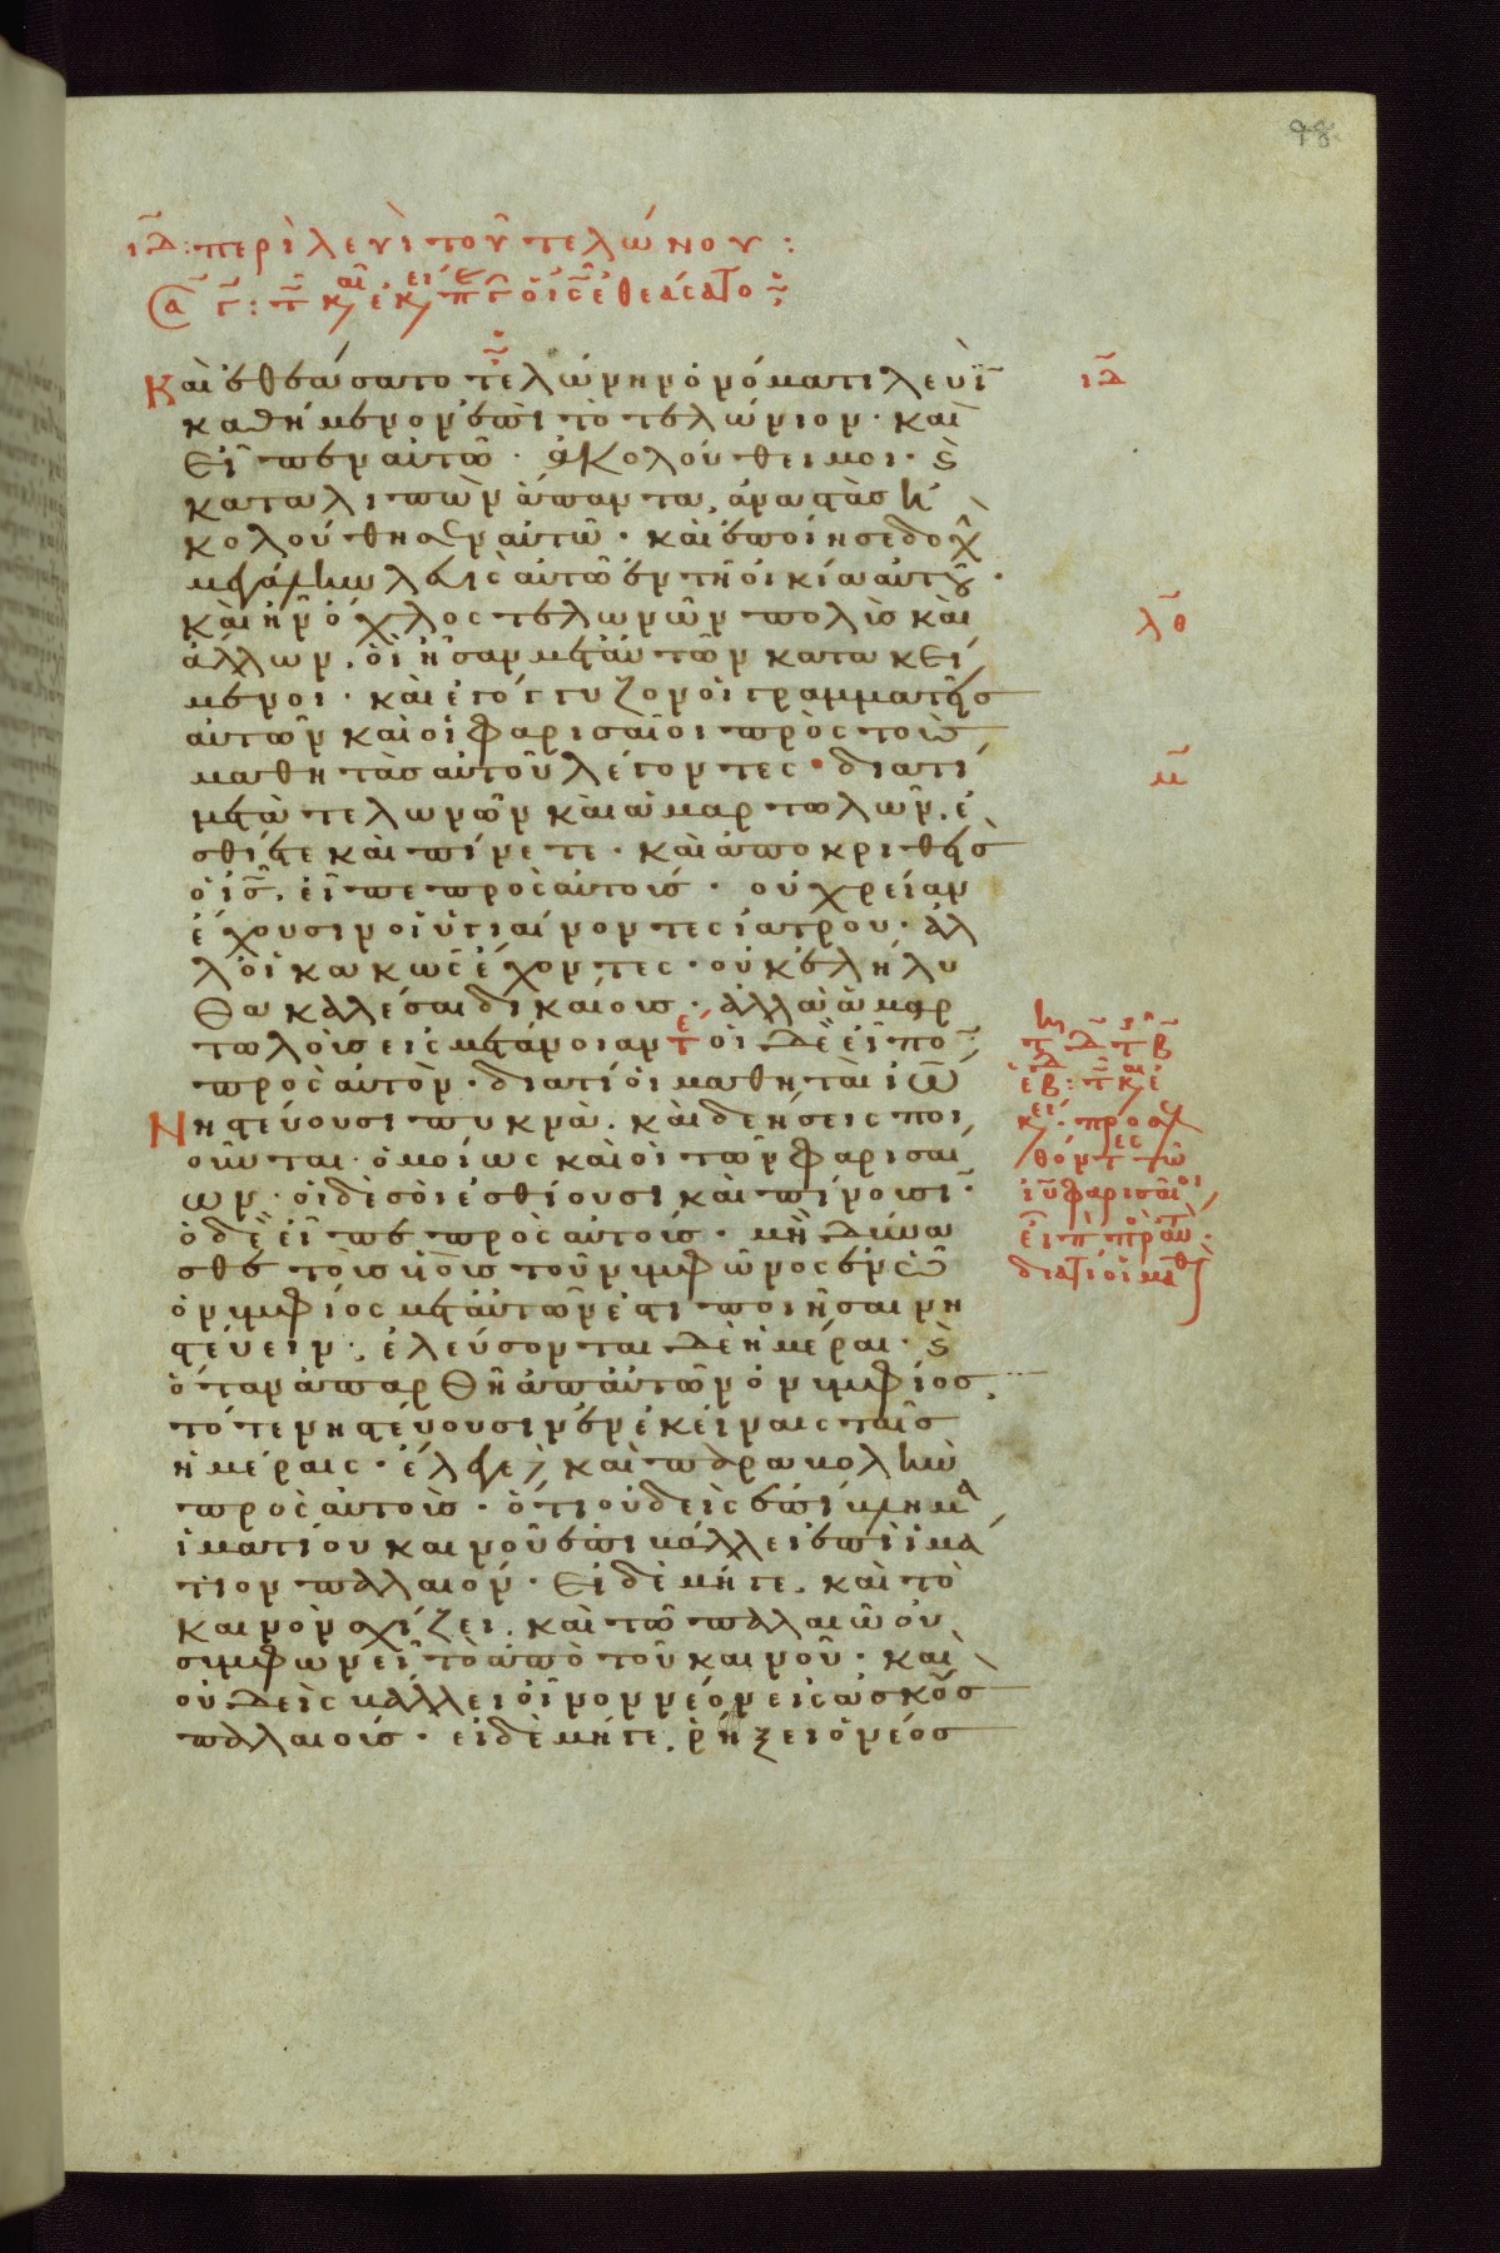 98
ιδ: περὶ λευὶ τοῦ τελώνου:
Σα γ: τ κ, ἐκ, π γ ὁ ις ἐθεάσατο
Καὶ ἐθεάσατο τελώνην ὀνόματι λευῒ
ιδ
καθήμενον ἐπὶ τὸ τελώνιον· καὶ
εἶπεν αὐτῶ· ἀκολούθει μοι· ϗ
καταλιπὼν ἅπαντα, ἀναστὰς ἠ
κολούθησεν αὐτῶ· καὶ ἐποίησε δοχὴ
μεγάλην λευὶς αὐτῶ ἐν τῆ οἰκία αὐτοῦ·
καὶ ἦν ὄχλος τελωνῶν πολὺς καὶ
λθ
ἄλλων, οἳ ἦσαν μετ' αὐτῶν κατακεί
μενοι· καὶ ἐγόγγυζον οἱ γραμματεῖς
αὐτῶν καὶ οἱ φαρισαῖοι πρὸς τοὺς
μαθητὰς αὐτοῦ λέγοντες· διατί
μ
μετὰ τελωνῶν καὶ ἁμαρτωλῶν, ἐ
σθίετε καὶ πίνετε· καὶ ἀποκριθεὶς
ὁ ις, εἶπε πρὸς αὐτούς· οὐ χρείαν
ἔχουσιν οἱ ὑγιαίνοντες ἰατροῦ· ἀλ
λ' οἱ κακῶς ἔχοντες· οὐκ ἐλήλυ
θα καλέσαι δικαίους, ἀλλὰ ἁμαρ
τωλοὺς εἰς μετάνοιαν τε οἱ δὲ εἶπο
πρὸς αὐτὸν· διατί οἱ μαθηταὶ ιω
Νηστεύουσι πυκνὰ, καὶ δεήσεις ποι
οῦνται· ὁμοίως καὶ οἱ τῶν φαρισαί
ων· οἱ δὲ σοὶ ἐσθίουσι καὶ πίνουσι·
ὁ δὲ εἶπε πρὸς αὐτούς· μὴ δύνα
σθε τοὺς υἱοὺς τοῦ νυμφῶνος ἐν ὧ
ὁ νυμφίος μετ' αὐτῶν ἐστι ποιῆσαι νη
στεύειν· ἐλεύσονται δὲ ἡμέραι· ϗ
ὅταν ἀπαρθῆ ἀπ' αὐτῶν ὁ νυμφίος,
τότε νηστεύουσιν ἐν ἐκείναις ταῖς
ἡμέραις· ἔλεγε, καὶ παραβολὴν
πρὸς αὐτοὺς· ὅτι οὐδεὶς ἐπίβλημα
ἱματίου καινοῦ ἐπιβάλλει ἐπὶ ἱμά
τιον παλαιόν· εἰ δὲ μήγε, καὶ τὸ
καινὸν σχίζει, καὶ τῶ παλαιῶ οὐ
συμφωνεῖ τὸ ἀπὸ τοῦ καινοῦ· καὶ
οὐδεὶς βάλλει οἶνον νέον εἰς ἀσκοὺς
παλαιούς· εἰ δὲ μήγε, ῥήξει ὁ νέος
τ δ τ β
ἑβ: τ κ, ἐ
κ,· προσελ
θόντες τῶ
ιυ φαρισαῖοι,
εἶπ πρὸς αὐ·
διατί οἱ μαθ